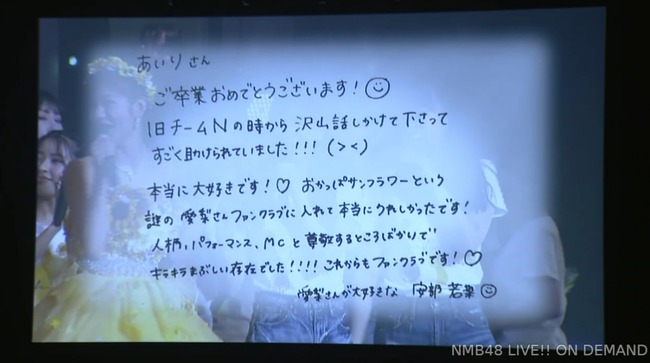 あいりさん
ご卒業おめでとうございます！
旧チームNの時から沢山話しかけて下さって
すごく助けられていました!!!(><)
本当に大好きです！♡ おかっぱサンフラワーという
謎の愛梨さんファンクラブに入れて本当にうれしかったです！
人柄、パフォーマンス、MCと尊敬するところばかりで
キラキラまぶしい存在でした!!!!これからもファンクラブです！♡
愛梨さんが大好きな 安部若菜
NMB48 LIVE!! ON DEMAND